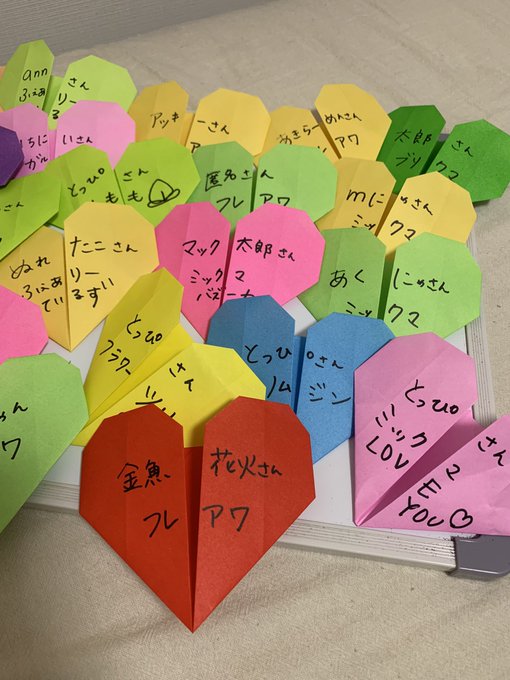 ann さん
ふぇありー
る
アッキーさん
あきらーめんさん
アワ
太郎さん
ブリ クマ
いさん
ガル
とっぴさん
もも
匿名さん
フレアワ
mにゅさん
ミックマ
ぬれたこさん
ふぇありー
ているすい
マック太郎さん
ミックマ
バズーカ
あくにゅさん
ミックマ
とっぴさん
フラワー
とっぴさん
ノムジン
とっぴさん
ミックマ
LOVE
YOU♡
金魚花火さん
フレアワ